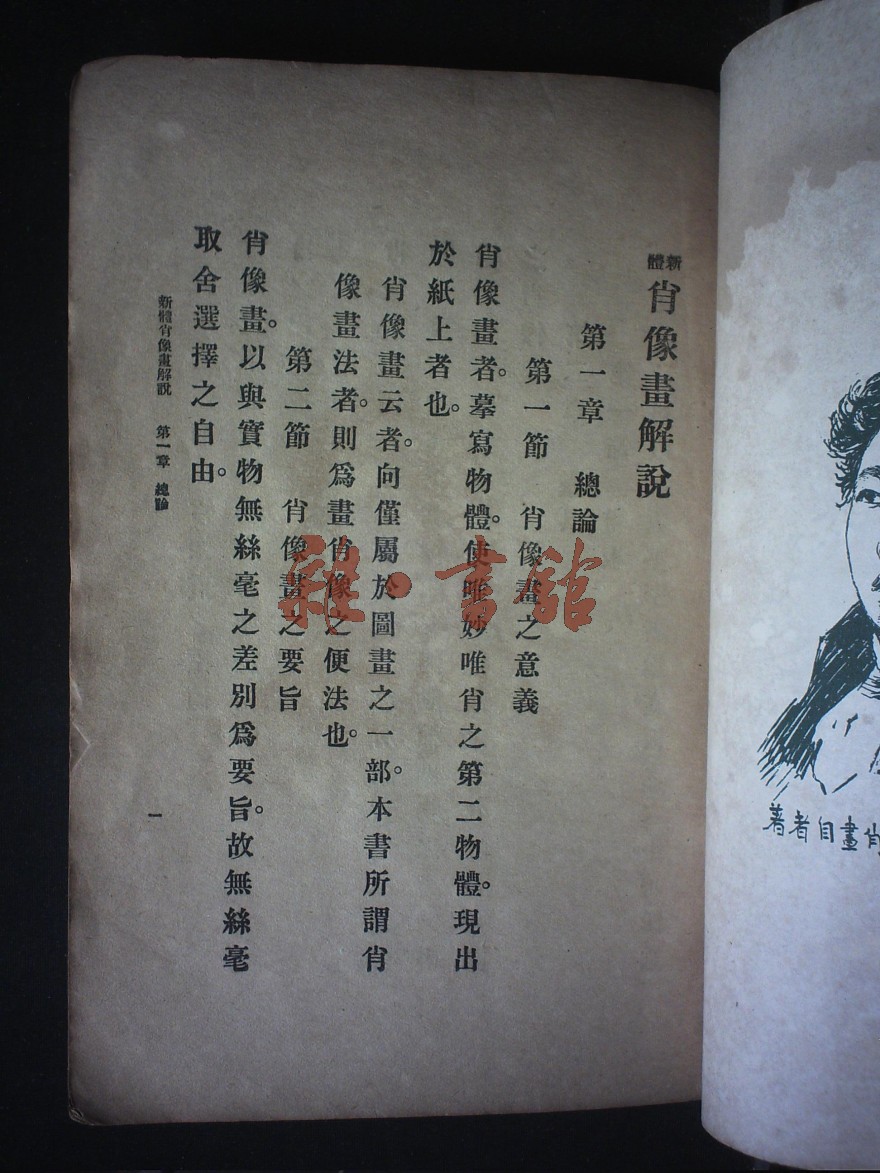 新體肖像畫解說
第一章　總論
第一節　肖像畫之意義
肖像畫者。摹寫物體。使唯妙唯肖之第二物體。現出
於紙上者也。
肖像畫云者。向僅屬於圖畫之一部。本書所謂肖
像畫法者。則爲畫肖像之便法也。
第二節　肖像畫之要旨
肖像畫。以與實物無絲毫之差別爲要旨。故無絲毫
取舍選擇之自由。
新體肖像畫解說　第一章　總論
一
著者自畫肖
雜·書館